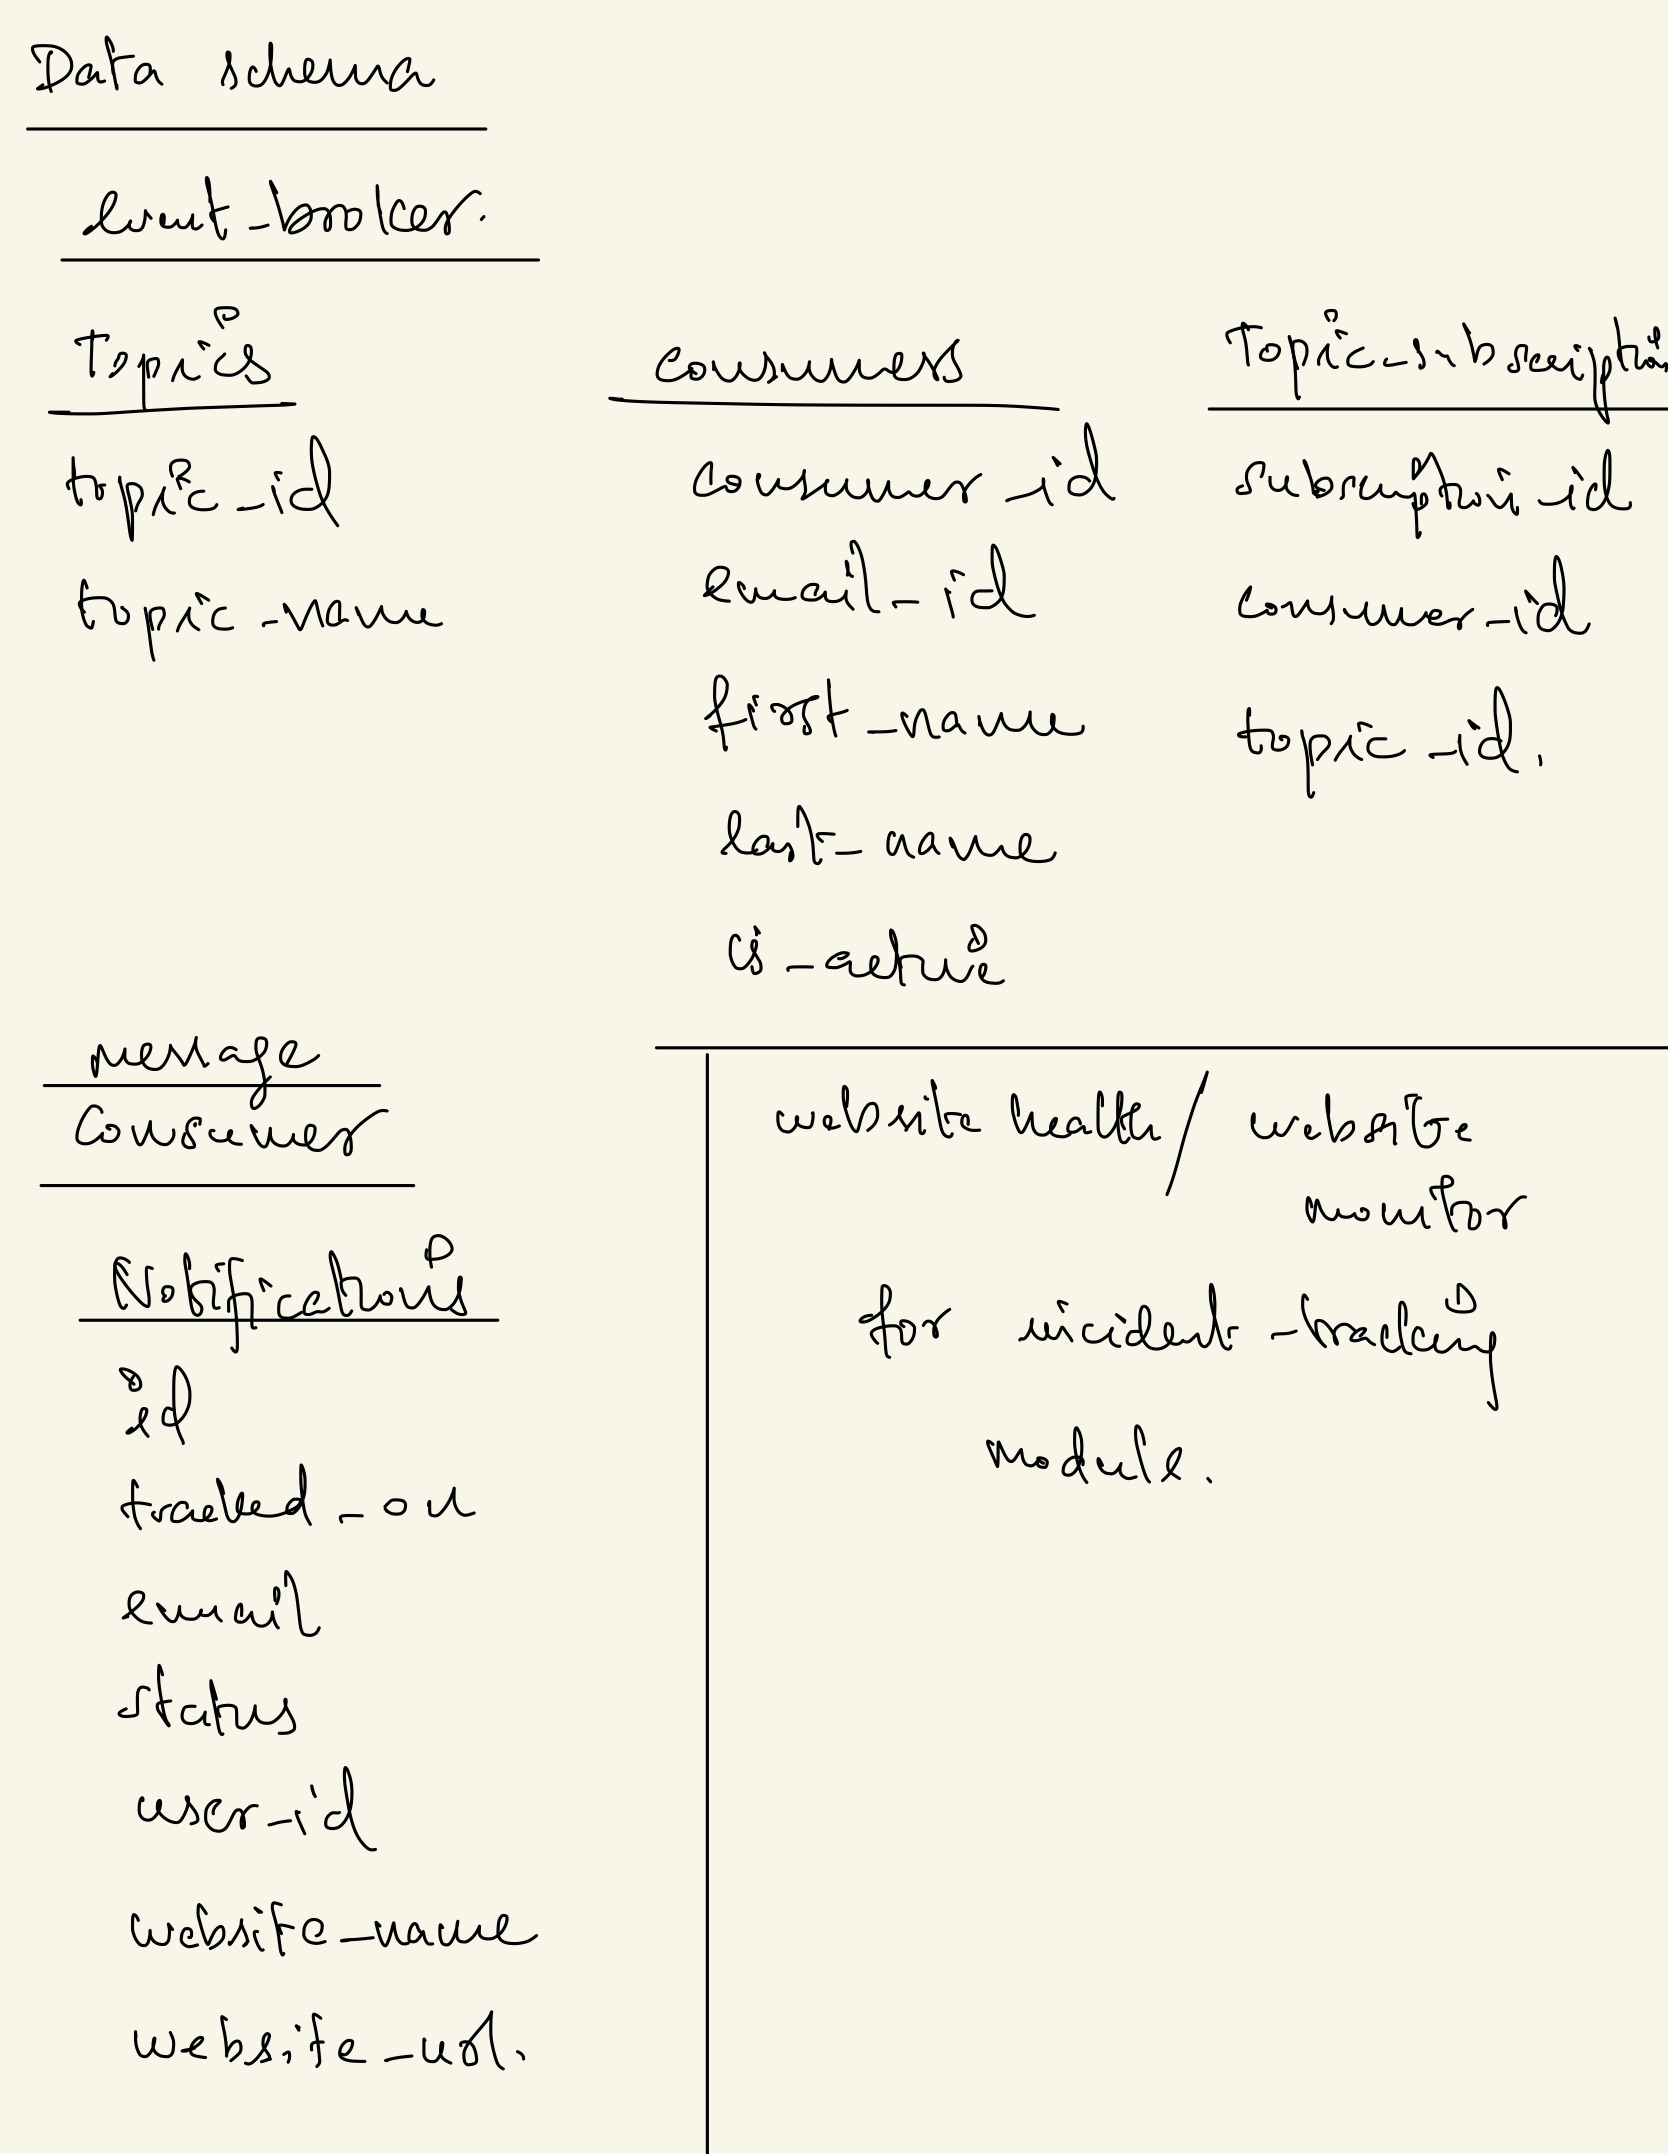 Data schema
event_broker.
Topics
topic_id
topic_name
consumers
consumer_id
email_id
first_name
last_name
is_active
Topic_subscription
subscription_id
consumer_id
topic_id.
message
Consumer
Notifications
id
tracked_on
email
status
user_id
website_name
website_url.
website health / website
monitor
for incident_tracking
module.